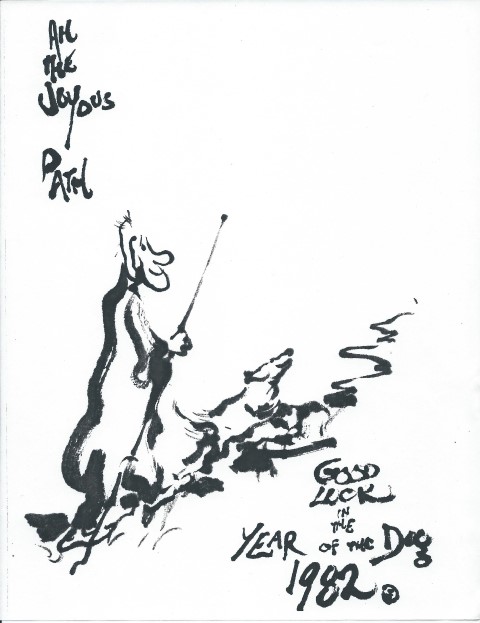 AH
THE
JOYOUS
PATH
GOOD
LUCK
IN
THE
YEAR OF THE DOG
1982